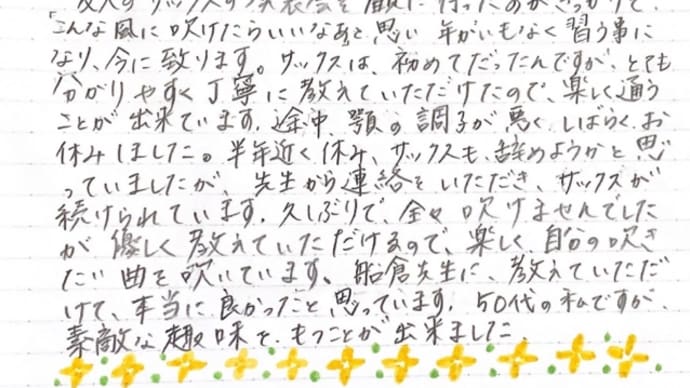 友人のサックスの発表会を観に行ったのがきっかけで、
こんな風に吹けたらいいなあと思い 年がいもなく習う事に
なり、今に致ります。サックスは、初めてだったんですが、とても
分かりやすく丁寧に教えていただけたので、楽しく通う
ことが出来ています。途中、顎の調子が悪く、しばらくお
休みしました。半年近く休み、サックスも、辞めようかと思
っていましたが、先生から連絡をいただき、サックスが
続けられています。久しぶりで、全々吹けませんでした
が優しく教えていただけるので、楽しく自分の吹き
たい曲を吹いています。船倉先生に、教えていただ
けて、本当に良かったと思っています。50代の私ですが、
素敵な趣味を、もつことが出来ました。